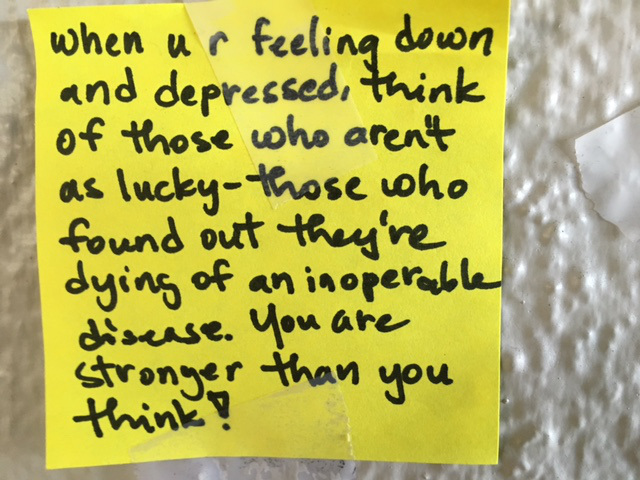 when u r feeling down
and depressed, think
of those who aren't
as lucky-those who
found out they're
dying of an inoperable
disease. You are
stronger than you
think!